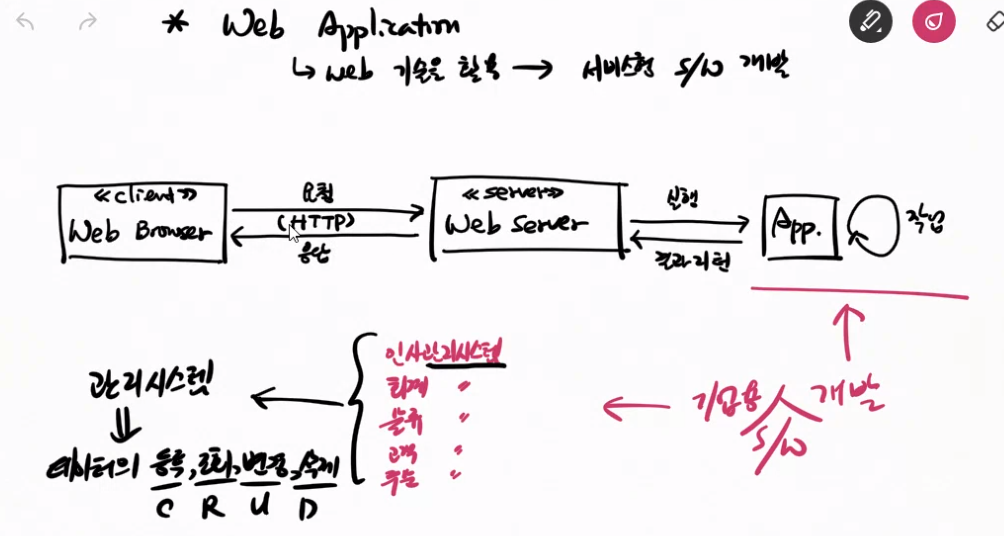 * Web Application
↳ web 기술을 활용 → 서비스형 S/W 개발
≪client≫
Web Browser
요청
(HTTP)
응답
≪server≫
Web Server
실행
결과 리턴
App.
작업
기업용 S/W 개발
인사관리시스템
회계 〃
물류 〃
고객 〃
주문 〃
관리시스템
데이터의 등록, 조회, 변경, 삭제
C R U D